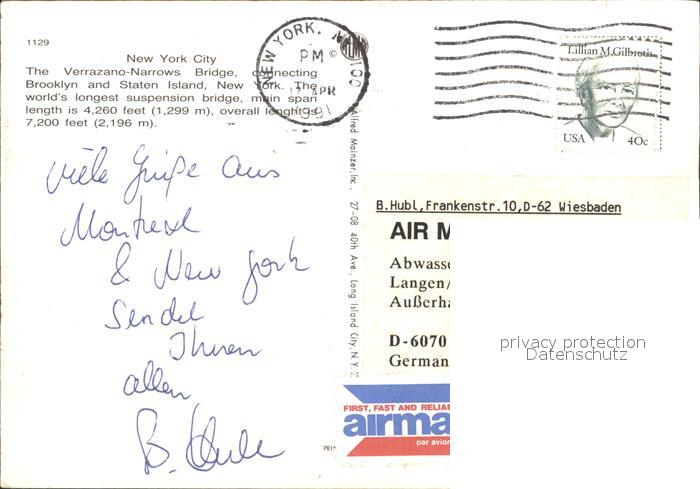 1129
New York City
The Verrazano-Narrows Bridge, connecting
Brooklyn and Staten Island, New York. The
world's longest suspension bridge, main span
length is 4,260 feet (1,299 m), overall lenght is
7,200 feet (2,196 m).
Viele Grüße aus
Montreal
& New York
sendet
Ihnen
allen
B. Huble
©
Alfred Mainzer, Inc., 27-08 40th Ave., Long Island City, N.Y.
NEW YORK, N
PM
APR
1991
100
Lillian M. Gilbreth
USA 40c
B.Hubl,Frankenstr.10,D-62 Wiesbaden
AIR M
Abwasse
Langen/
Außerha
D-6070
German
privacy protection
Datenschutz
FIRST, FAST AND RELIAB
airma
par avion
PRIN